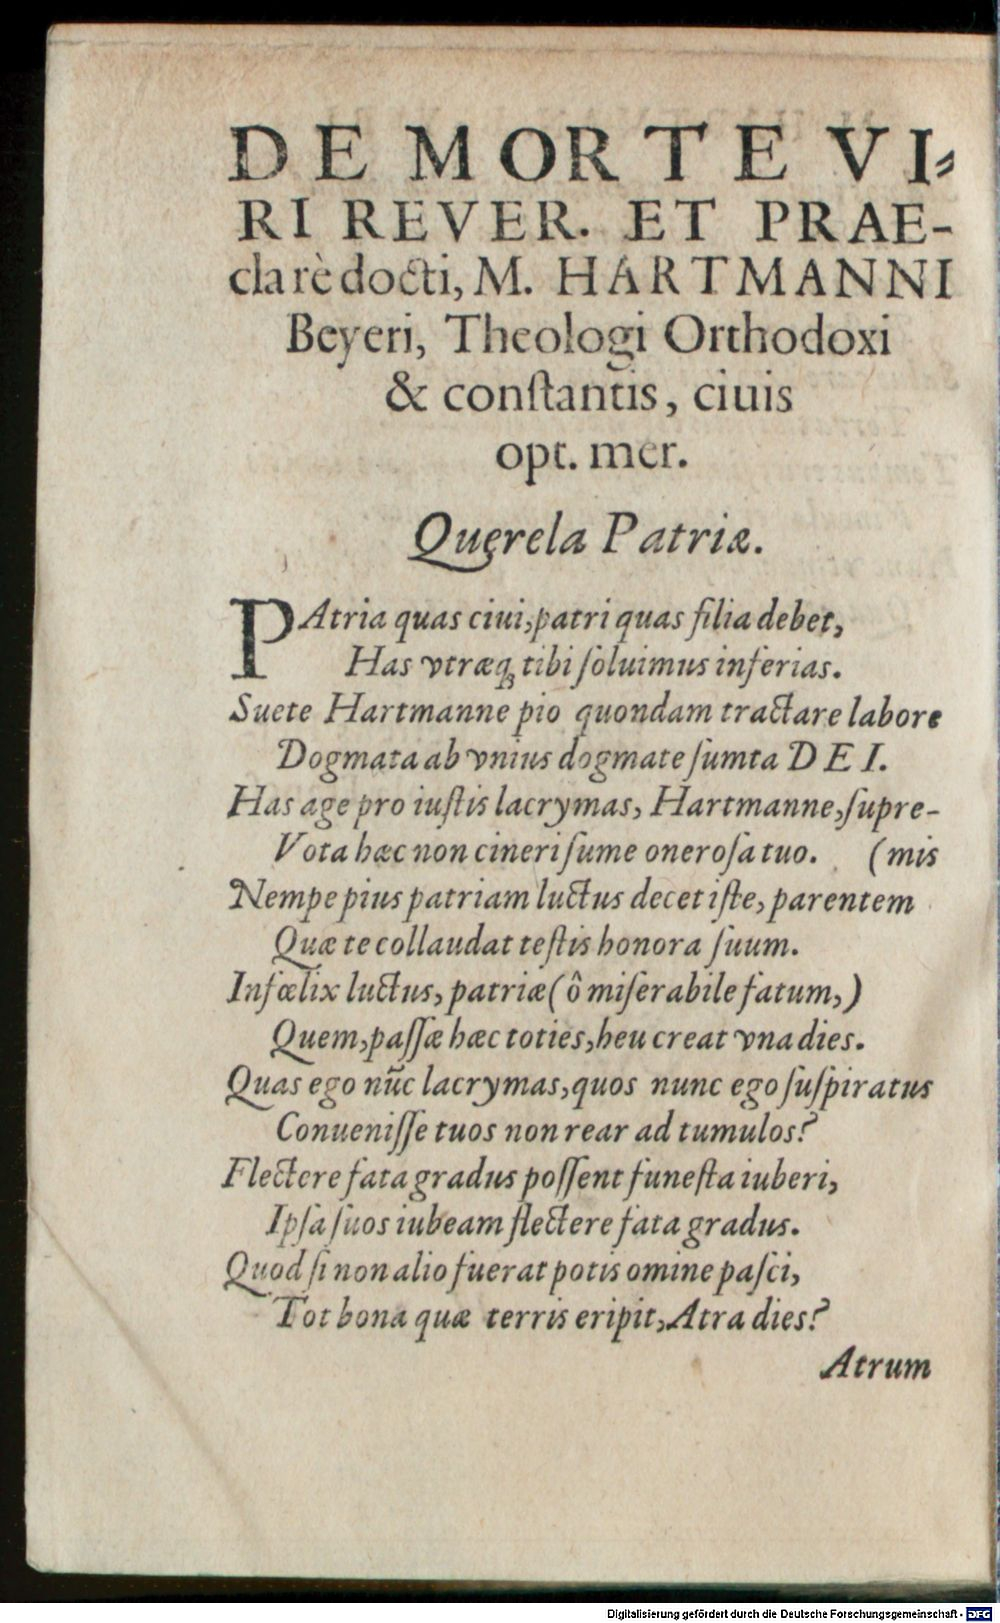 DE MORTE VI-
RI REVER. ET PRAE-
clarè docti, M. HARTMANNI
Beyeri, Theologi Orthodoxi
& conſtantis, ciuis
opt. mer.
Querela Patriæ.
PAtria quas ciui, patri quas filia debet,
Has vtræq; tibi ſoluimus inferias.
Suete Hartmanne pio quondam tractare labore
Dogmata ab vnius dogmate ſumta DEI.
Has age pro iuſtis lacrymas, Hartmanne, ſupre-
Vota hæc non cineri ſume oneroſa tuo. (mis
Nempe pius patriam luctus decet iſte, parentem
Quæ te collaudat teſtis honora ſuum.
Infœlix luctus, patriæ (ô miſerabile fatum,)
Quem, paſſæ hæc toties, heu creat vna dies.
Quas ego nūc lacrymas, quos nunc ego ſuſpiratus
Conueniſſe tuos non rear ad tumulos?
Flectere fata gradus poſſent funeſta iuberi,
Ipſa ſuos iubeam flectere fata gradus.
Quod ſi non alio fuerat potis omine paſci,
Tot bona quæ terris eripit, Atra dies?
Atrum
Digitalisierung gefördert durch die Deutsche Forschungsgemeinschaft - DFG